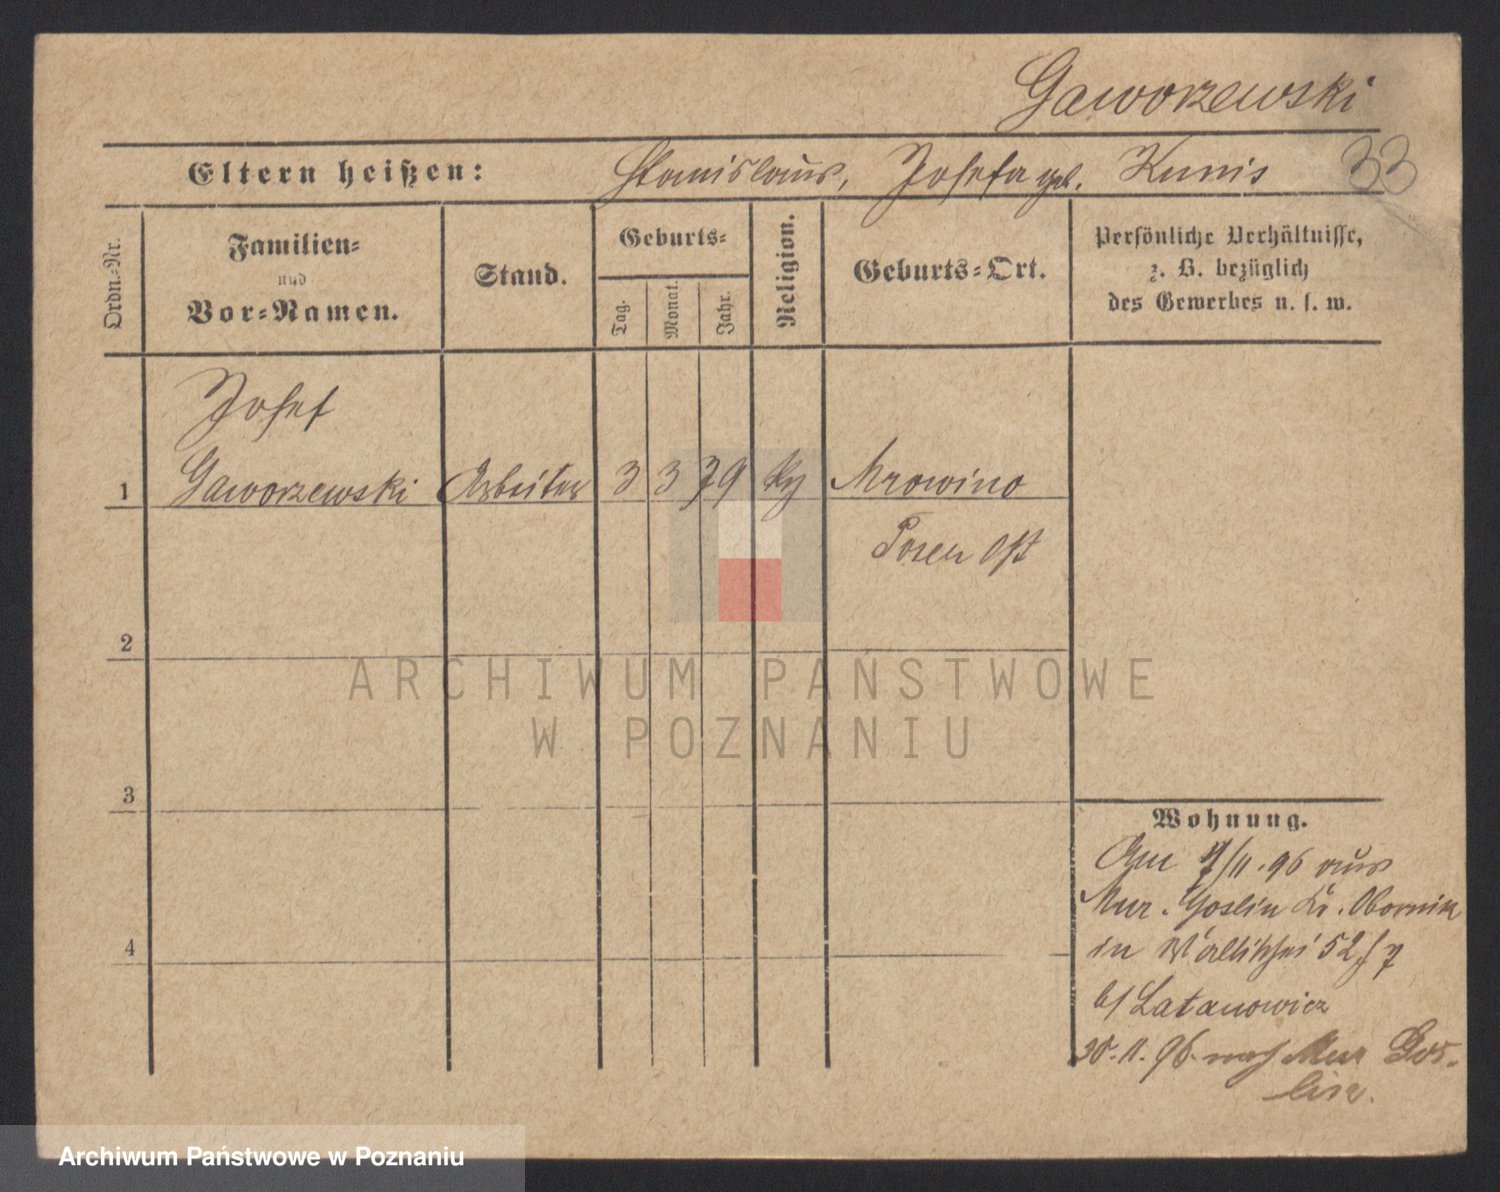 Gaworzewski
33
Eltern heißen: Stanislaus, Josefa geb. Kunis
Ordn.-Nr.
Familien-
und
Vor-Namen.
Stand.
Geburts-
Tag.
Monat.
Jahr.
Religion.
Geburts-Ort.
Persönliche Verhältnisse,
z. B. bezüglich
des Gewerbes u. s. w.
Josef
1 Gaworzewski Arbeiter 3 3 79 Mrowino
Posen Ost
2
3
4
ARCHIWUM PAŃSTWOWE
W POZNANIU
Wohnung.
Am 9/11. 96 aus
Mur. Goslin Kr. Obornik
in Wallischei 52
b/ Latanowicz
30.11.96. nach Mur Gos-
lin.
Archiwum Państwowe w Poznaniu